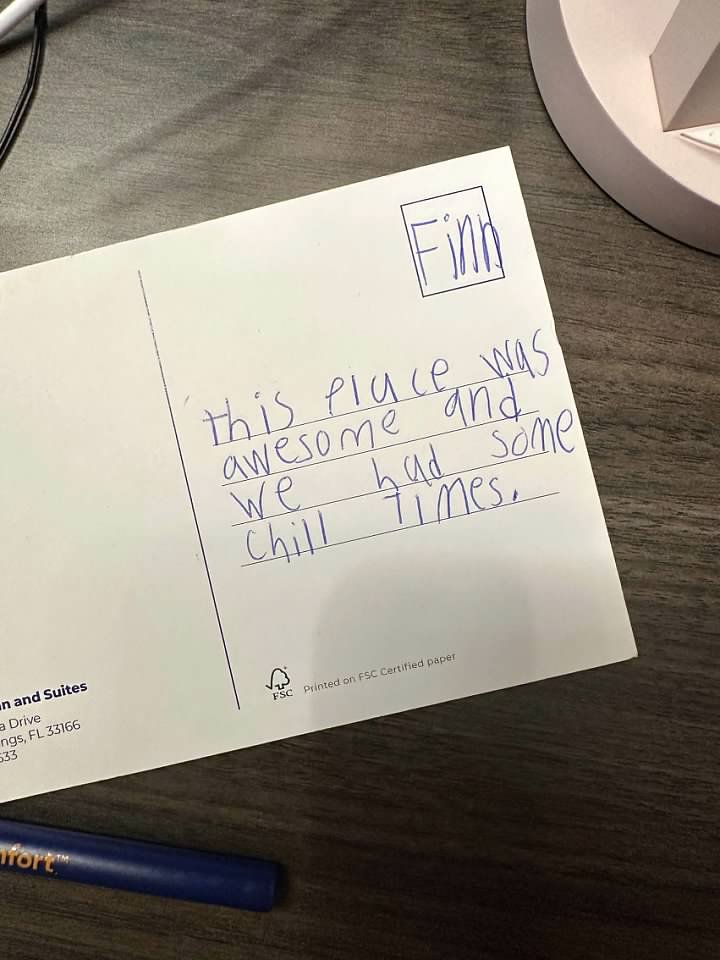 Finn
this place was
awesome and
we had some
chill times.
FSC
Printed on FSC Certified paper
and Suites
Drive
FL 33166